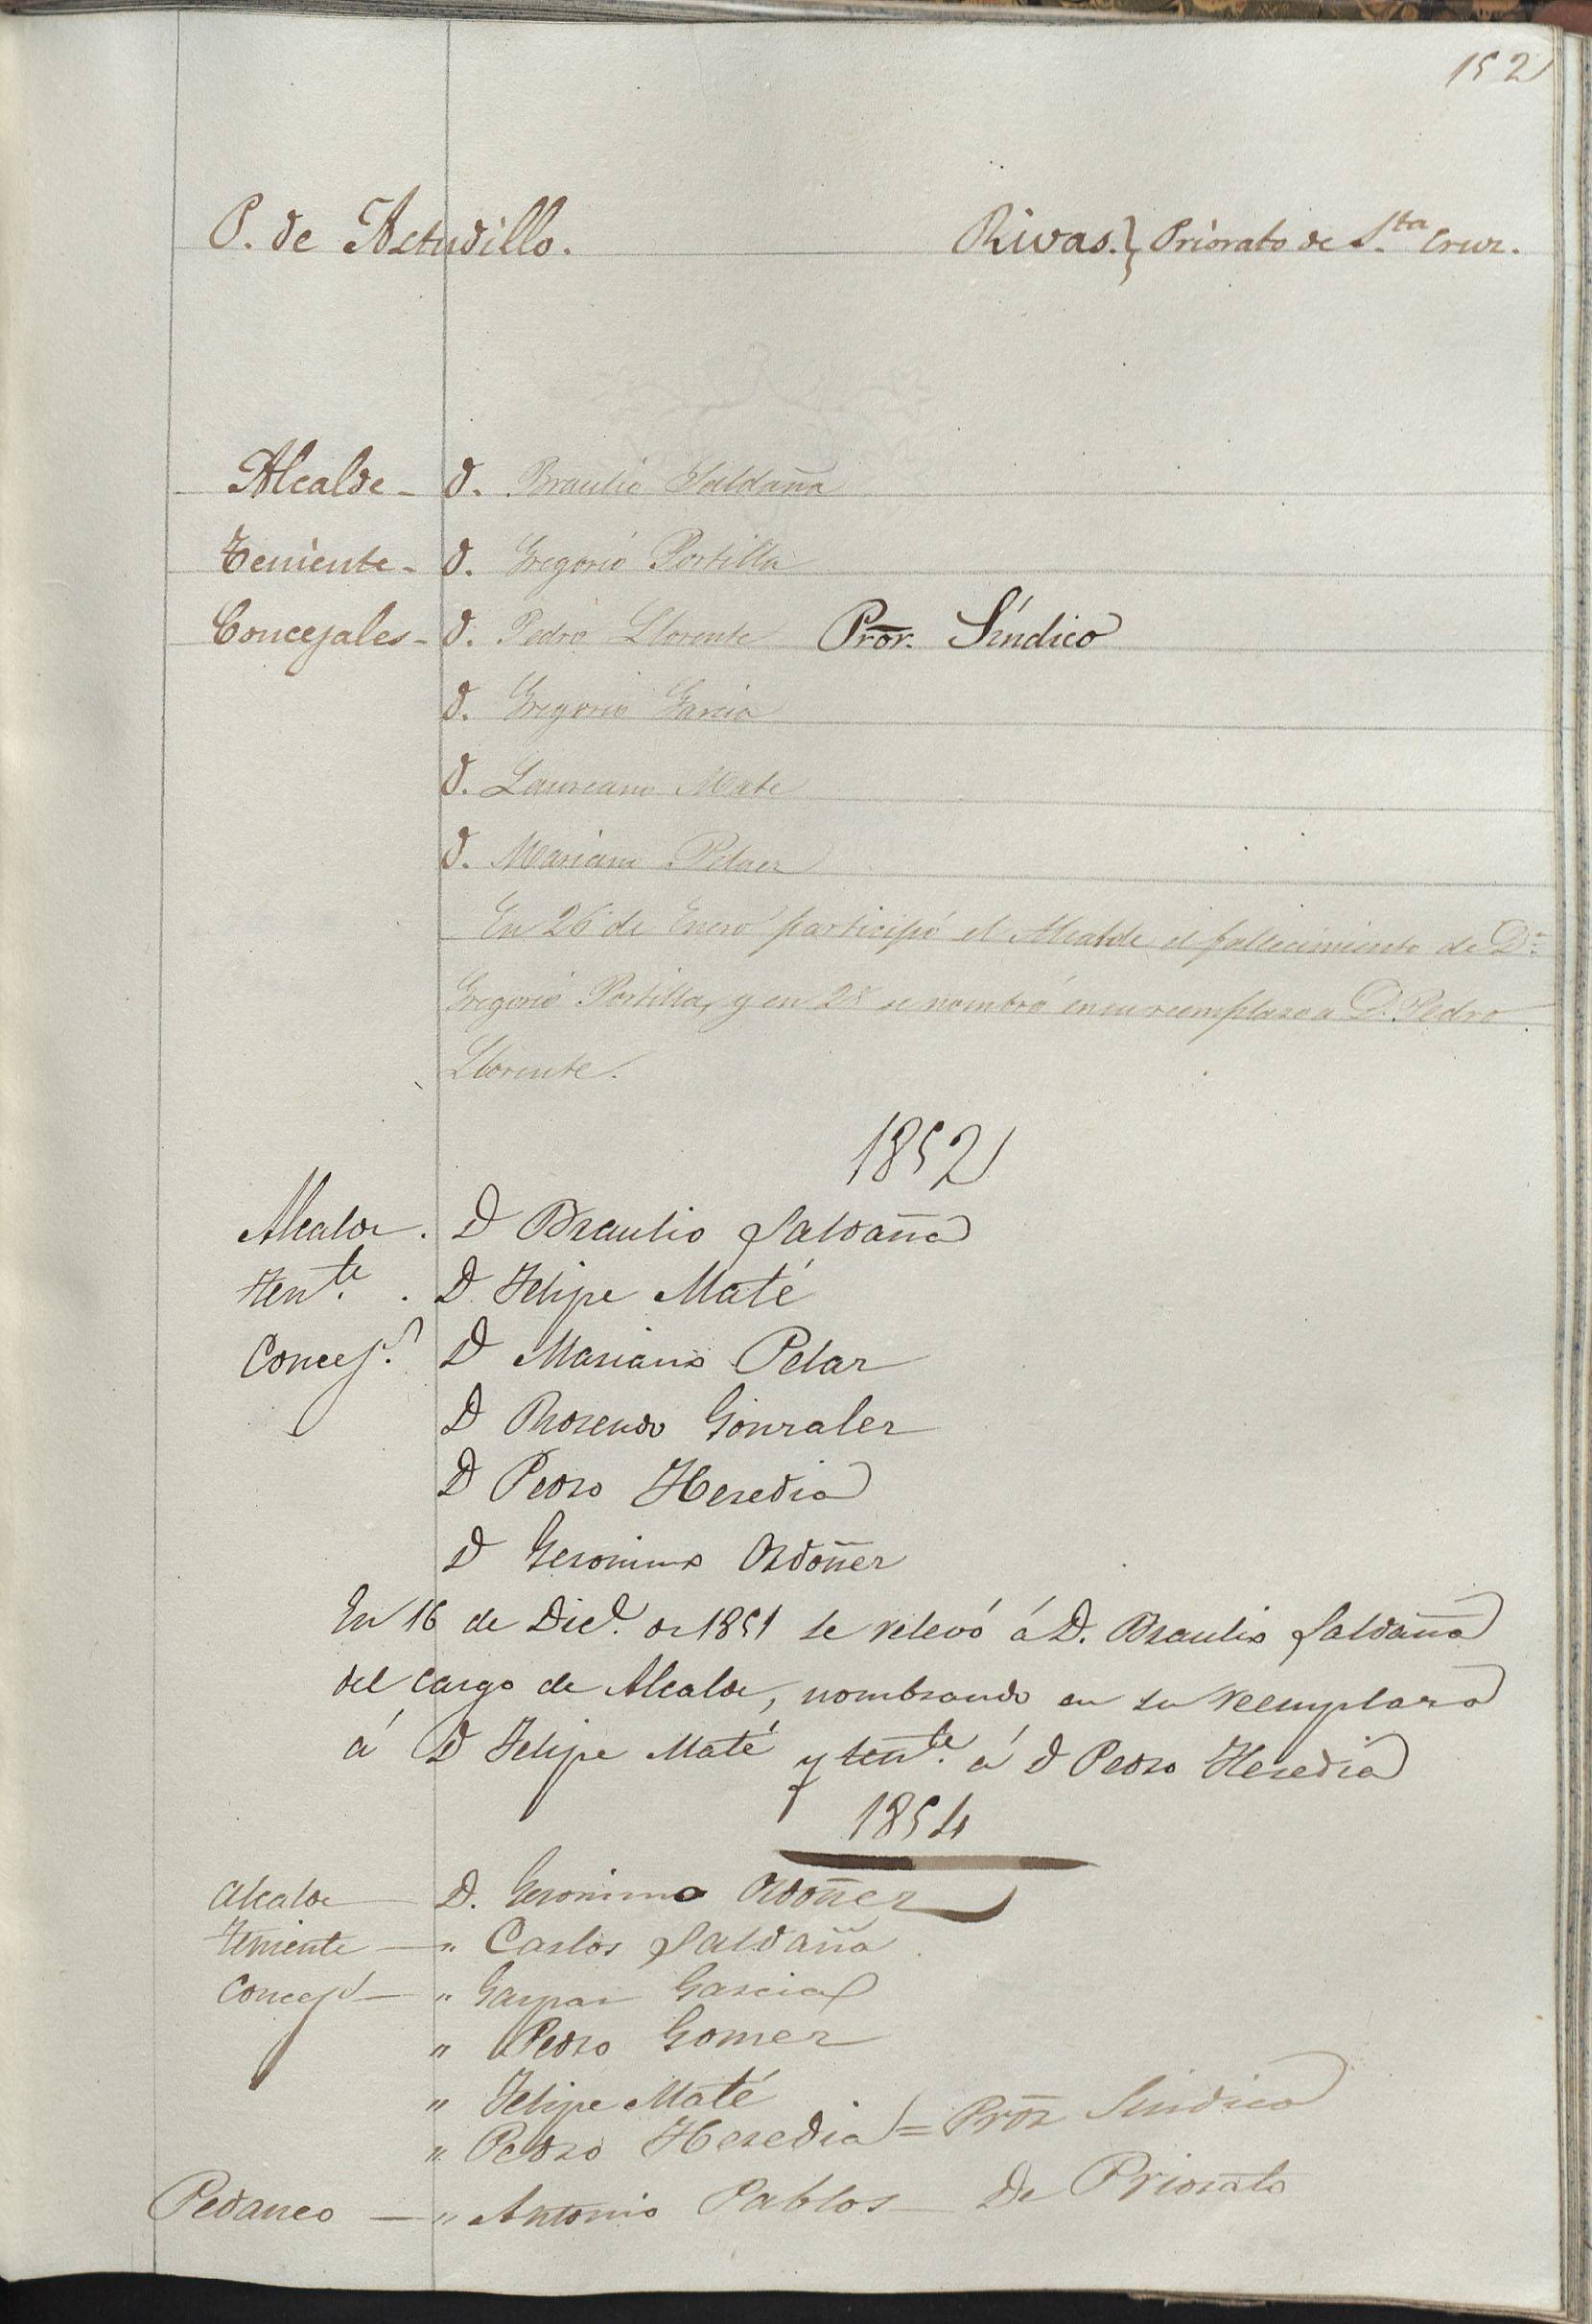 152
P. de Astudillo. Rivas.} Priorato de S.ta Cruz.
Alcalde - D. Braulio Saldaña
Teniente - D. Gregorio Portilla
Concejales - D. Pedro Llorente Pror. Síndico
D. Gregorio Garcia
D. Laureano Mate
D. Mariano Pelaez
En 26 de Enero participó el Alcalde el fallecimiento de Dn.
Gregorio Portilla, y en 28 se nombró en su reemplazo a D. Pedro
Llorente.
1852
Alcalde. D Braulio Saldaña
Ten.te . D. Felipe Maté
Concej.s D Mariano Pelaz
D Rosendo Gonzalez
D Pedro Heredia
D Geronimo Ordoñez
En 16 de Dic.e de 1851 se relevó á D. Braulio Saldaña
del cargo de Alcalde, nombrando en su reemplazo
á D Felipe Maté y ten.te á D Pedro Heredia
1854
Alcalde — D. Geronimo Ordoñez
Teniente — " Carlos Saldaña
Concej.s — " Gaspar Garcia
" Pedro Gomez
" Felipe Maté
" Pedro Heredia = Pror Sindico
Pedaneo — " Antonio Pablos De Priorato